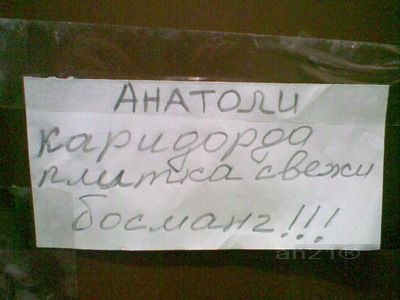 АНАТОЛИ
каридорда
плитка свежи
босманг!!!
an21®